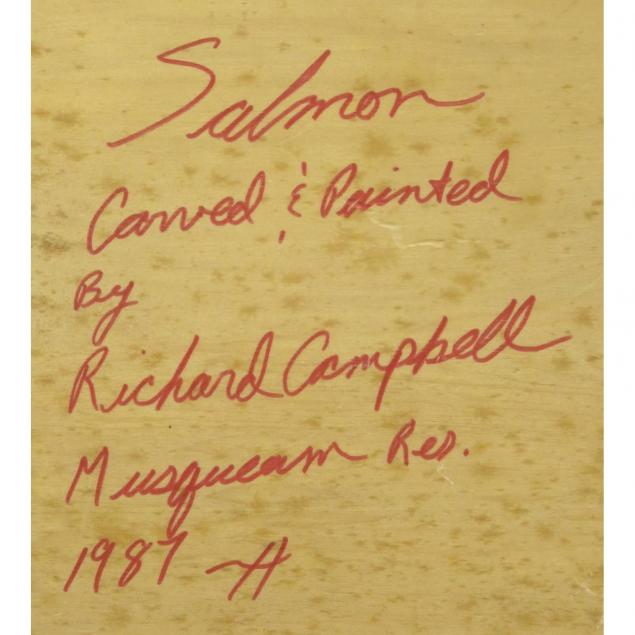 Salmon
Carved & Painted
By
Richard Campbell
Musqueam Res.
1987